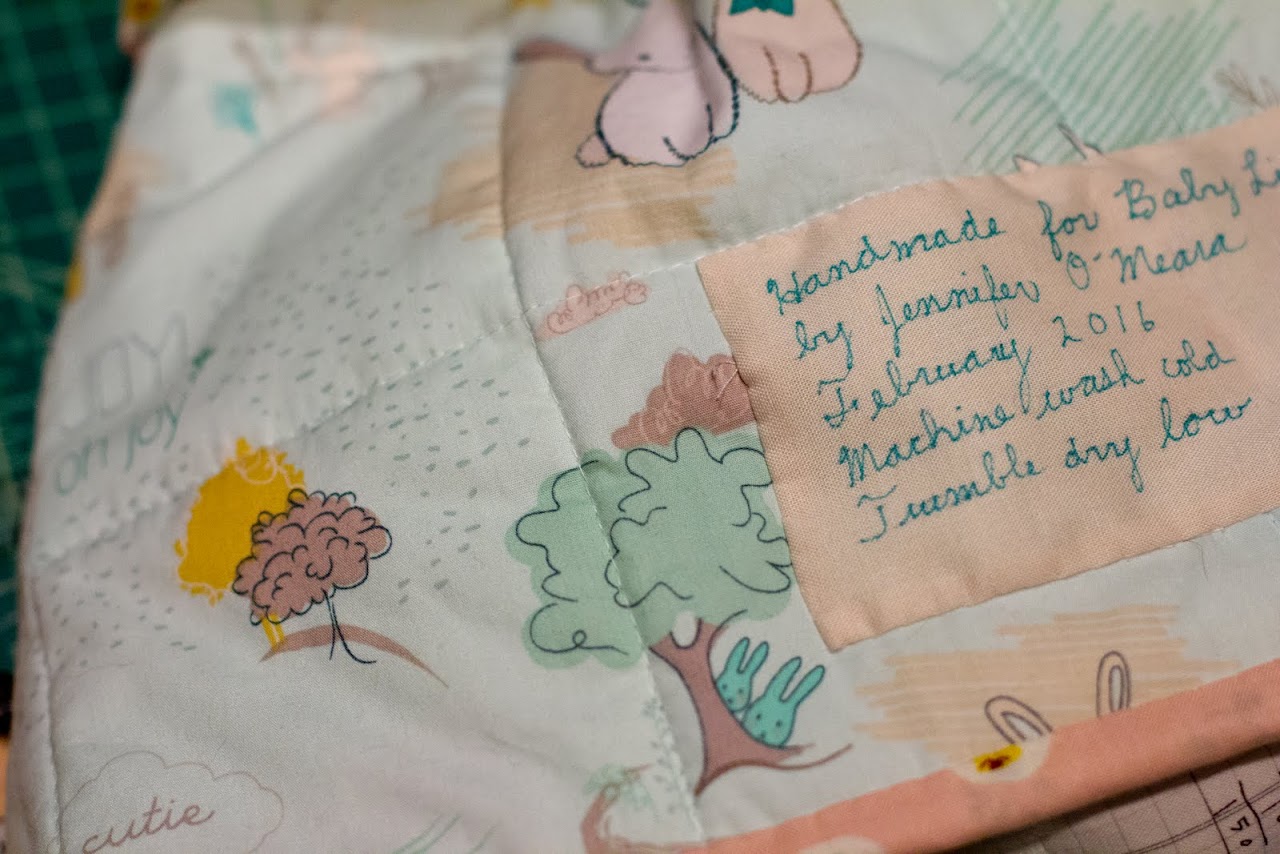 Handmade for Baby Li
by Jennifer O'Meara
February 2016
Machine wash cold
Tumble dry low
JOY!
oh joy
cutie
50